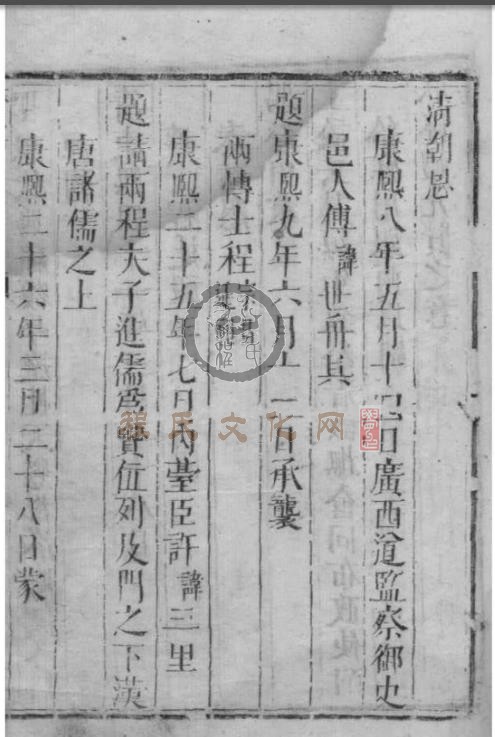 清朝恩
康熙八年五月十四日廣西道監察御史
邑人傅諱世舟具
題康熙九年六月十二日承襲
兩博士程
康熙二十五年七月內臺臣許諱三里
題請兩程夫子進儒爲賢位列及門之下漢
唐諸儒之上
康熙二十六年三月二十八日蒙
程氏文化网